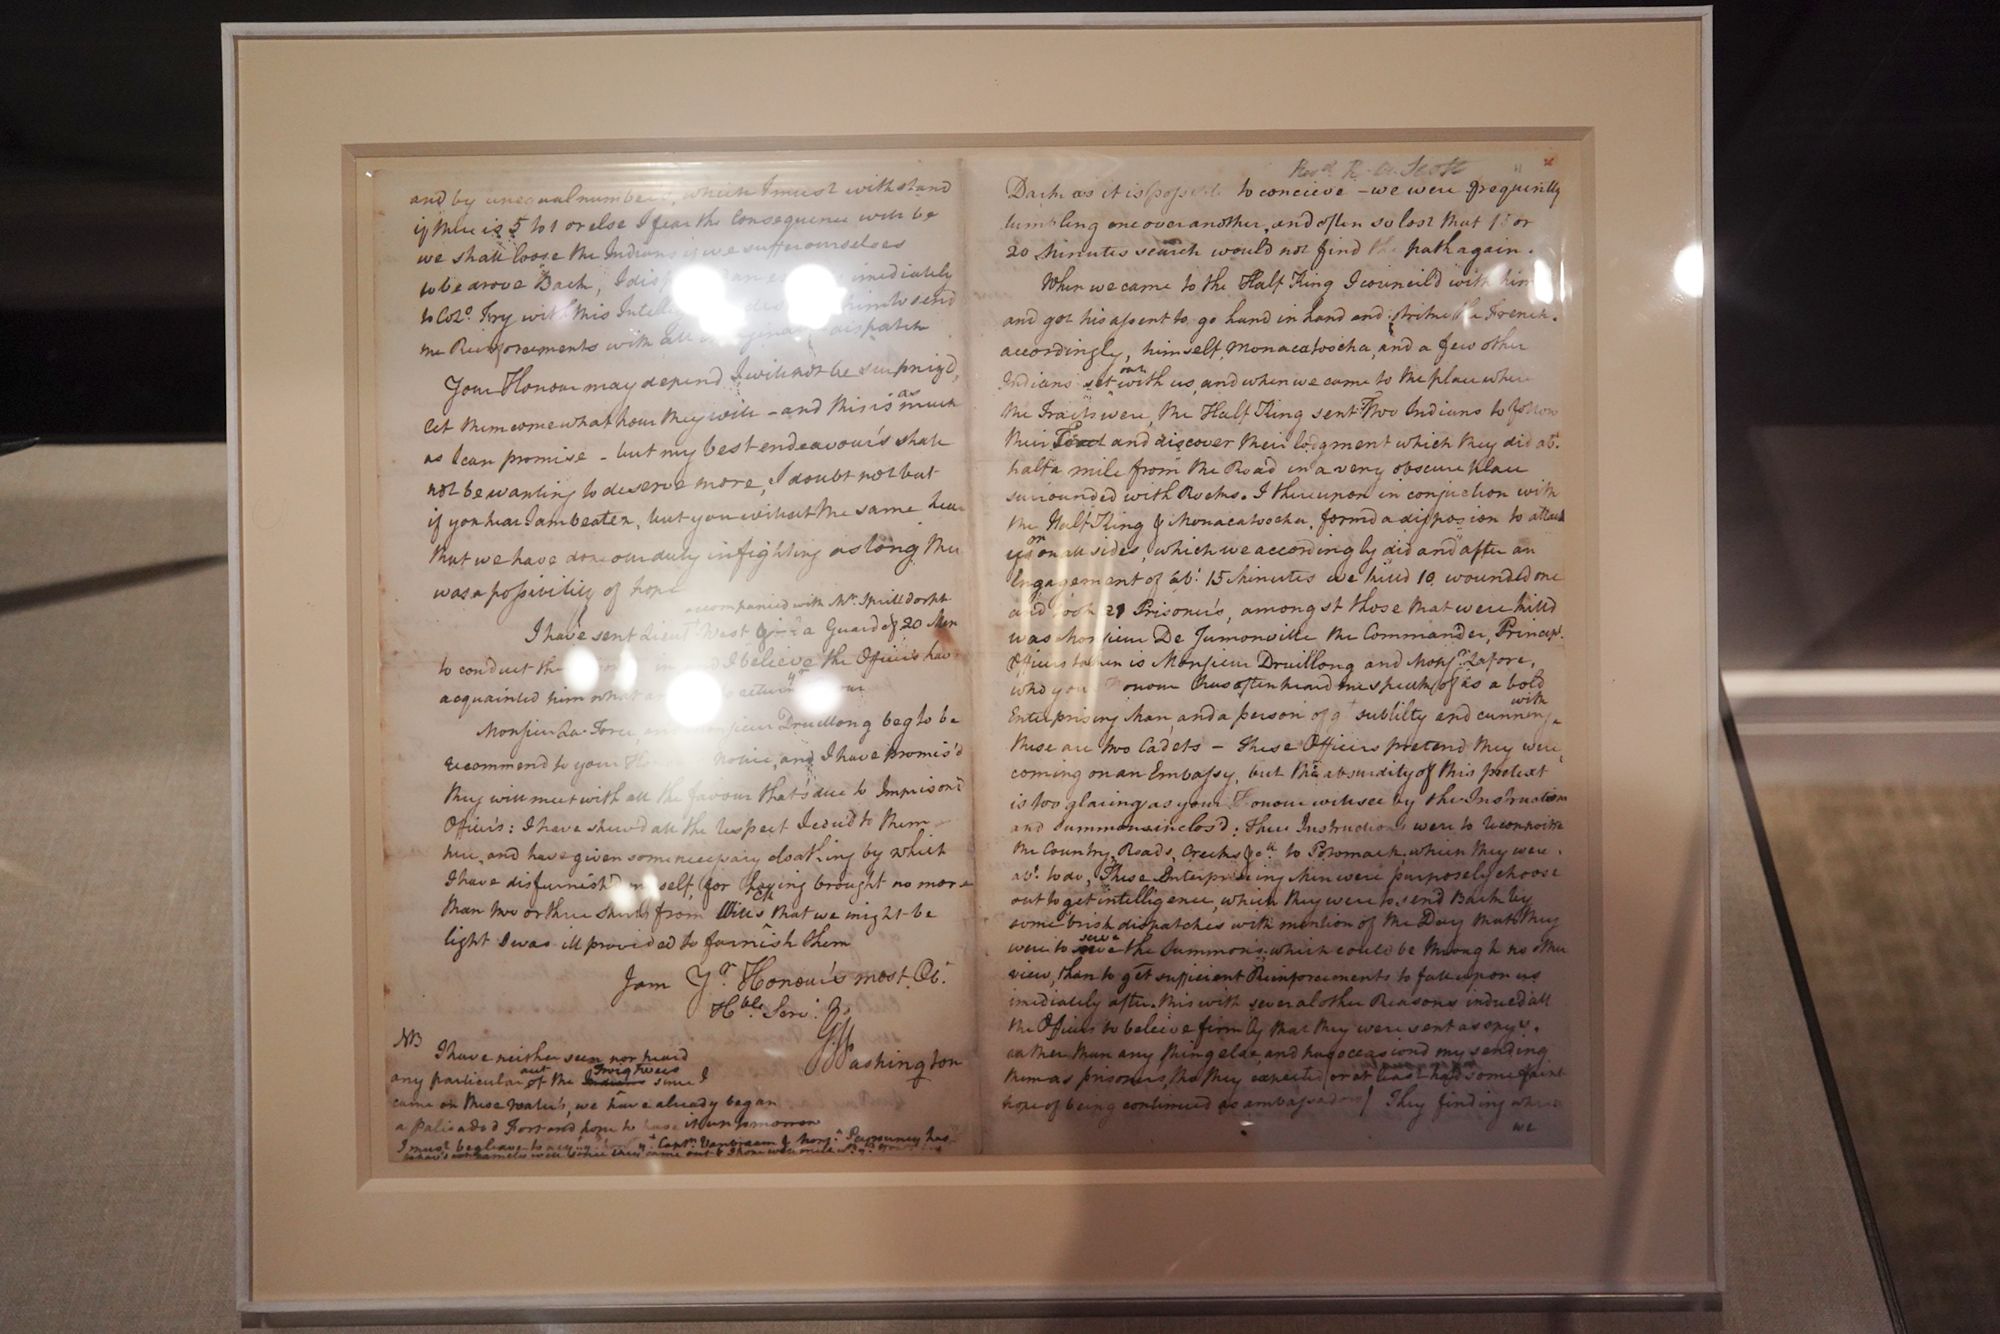 and by unequal numbers, which I must withstand
if there is 5 to 1 or else I fear the Consequence will be
we shall loose the Indians if we suffer ourselves
to be drove Back, I an imediately
to Colo. Fry with this him to send
me Reinforcements with all dispatch
Your Honour may depend I will not be surprizd,
let them come what hour they will - and this is as much
as I can promise - but my best endeavour's shall
not be wanting to deserve more, I doubt not but
if you hear I am beaten, but you will at the same hear
that we have done our duty in fighting as long there
was a possibility of hope
I have sent Lieut West accompanied with Mr. Sprilldorph & a Guard of 20 Men
to conduct the in and I believe the Officers have
acquainted him what to return
Monsieur La Force, and Monsieur Druillong beg to be
recommend to your Notice, and I have promis'd
they will meet with all the favour that's due to Imprison'd
Officer's: I have shew'd all the respect I coud to them
here, and have given some necessary cloathing by which
I have disfurnish'd myself, for having brought no more
than two or three Shirts from Wills Ck that we might be
light I was ill provided to furnish them
I am Yr. Honour's most Obt.
Hble. Servt.
G Washington
NB
I have neither seen nor heard
any particular acct of the Twigtwees Indians since I
came on these water's, we have already began
a Palisadod Fort and hope to have it up tomorrow
I must beg leave to acqt Captn. Vanbraam & Monsr. Peyrouney has
Revd. R. A. Scott
Dark as it is possible to concieve - we were frequently
tumbling one over another, and often so lost that 15 or
20 Minutes search would not find the path again.
When we came to the Half King I council'd with him
and got his assent to go hand in hand and strike the French.
accordingly, himself, Monacatoocha, and a few other
Indians set out with us, and when we came to the place where
the Tracts were, the Half King sent Two Indians to follow
their Tract and discover their lodgment which they did abt.
half a mile from the Road in a very obscure place
surrounded with Rocks. I thereupon in conjuction with
the Half King & Monacatoocha, formd a disposion to attack
on all sides, which we accordingly did and after an
Engagement of abt. 15 Minutes we killd 10, wounded one
and took 21 Prisoner's, amongst those that were killd
was Monsieur De Jumonville the Commander, Principl.
Officers taken is Monsieur Druillong and Monsr. Laforc,
who your Honour has often heard me speak of as a bold
Enterprising Man and a person of gt sublilty and cunning with
these are two Cadets - These Officers pretend they were
coming on an Embassy, but the absurdity of this pretext
is too glaring as your Honour will see by the Instructions
and Summons inclos'd: Their Instructions were to reconnoitre
the Country, Roads, Creeks &ca. to Potomack, which they were
abt. to do, These Enterprising Men were purposely choose
out to get intelligence, which they were to send Back by
some brisk dispatches with mention of the Day that they
were to serve the Summon's; which could be through no other
view, than to get sufficient Reinforcements to fall upon us
imediately after. this with several other Reasons induc'd all
the Officers to beleive firmly that they were sent as spys
rather than any thing else, and has occasiond my sending
them as prisoners, tho they expected (or at least had some faint
hope of being continued as ambassadors) They finding where
we